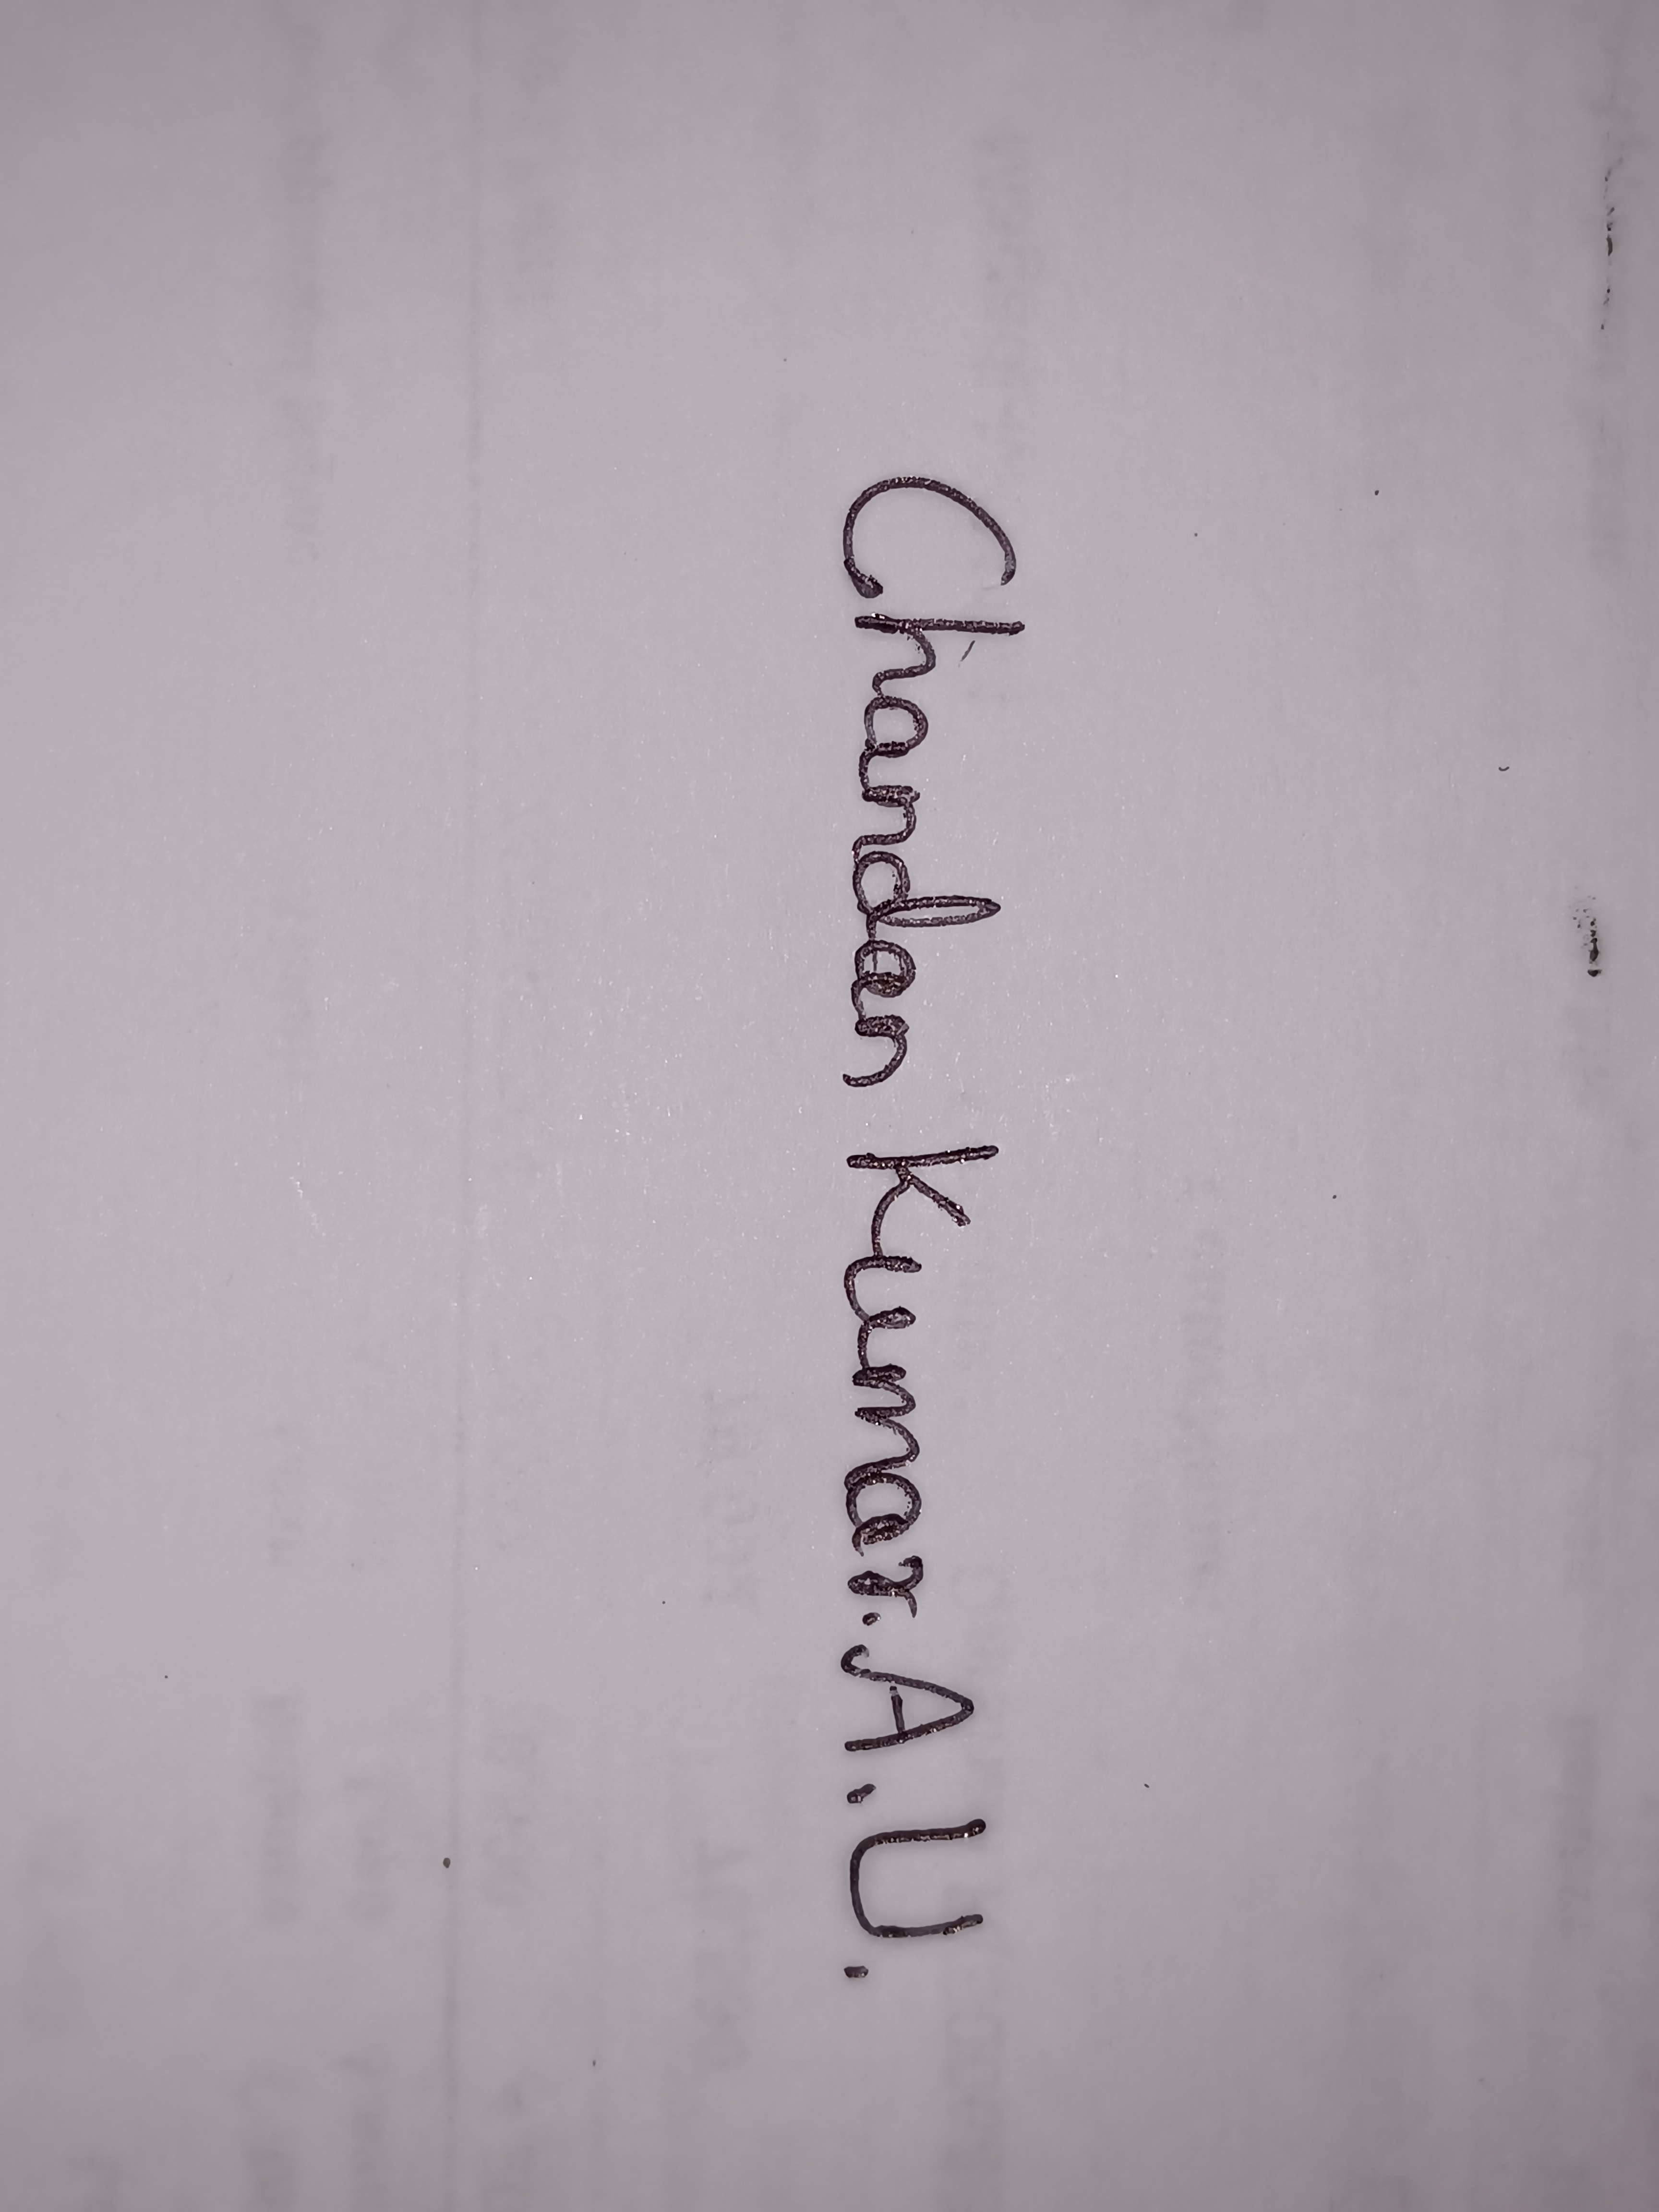 Chandan Kumar. A. U.